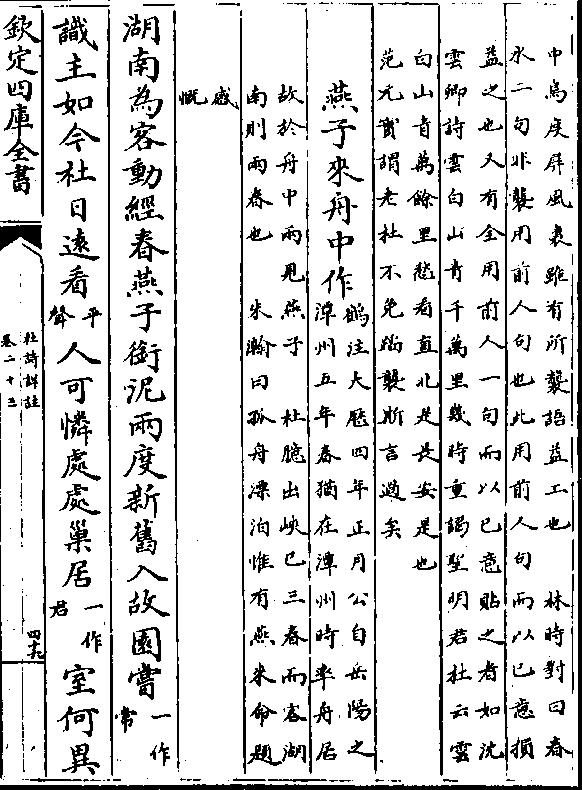 中鳥度屏風裏雖有所襲語益工也　林時對曰春
水二句非襲用前人句也此用前人句而以已意損
益之也又有全用前人一句而以已意貼之者如沈
雲卿詩雲白山青千萬里幾時重謁聖明君杜云雲
白山青萬餘里愁看直北是長安是也
范元實謂老杜不免蹈襲斯言過矣
燕子來舟中作
鶴注大厯四年正月公自岳陽之
潭州五年春猶在潭州時率舟居
故於舟中兩見燕子　杜臆出峽已三春而客湖
南則兩春也　朱瀚曰孤舟漂泊惟有燕來命題
感
慨
湖南為客動經春燕子銜泥兩度新舊入故園嘗一作常
識主如今社日遠看平聲人可憐處處巢居一作君室何異
欽定四庫全書
杜詩詳註
卷二十三
四十九